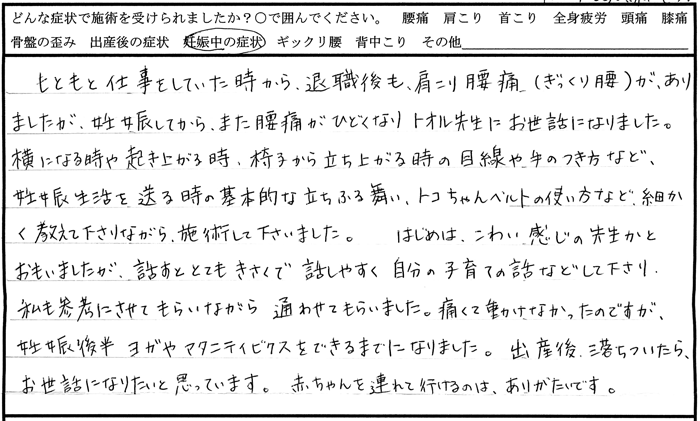 どんな症状で施術を受けられましたか？○で囲んでください。　腰痛　肩こり　首こり　全身疲労　頭痛　膝痛
骨盤の歪み　出産後の症状　妊娠中の症状　ギックリ腰　背中こり　その他
もともと仕事をしていた時から、退職後も、肩こり腰痛（ぎっくり腰）が、あり
ましたが、妊娠してから、また腰痛がひどくなりトオル先生にお世話になりました。
横になる時や起き上がる時、椅子から立ち上がる時の目線や手のつき方など、
妊娠生活を送る時の基本的な立ちふる舞い、トコちゃんベルトの使い方など、細か
く教えて下さりながら、施術して下さいました。　はじめは、こわい感じの先生かと
おもいましたが、話すととてもきさくで話しやすく自分の子育ての話などして下さり、
私も参考にさせてもらいながら通わせてもらいました。痛くて動かけなかったのですが、
妊娠後半ヨガやマタニティビクスをできるまでになりました。出産後、落ちついたら、
お世話になりたいと思っています。赤ちゃんを連れて行けるのは、ありがたいです。